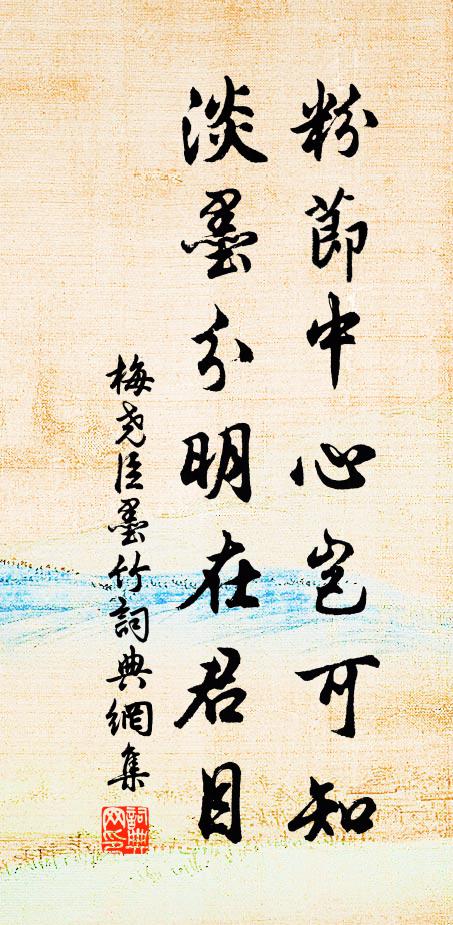 粉節中心岂可知
淡墨分明在君目
梅尧臣墨竹詞典網集
詞典网印